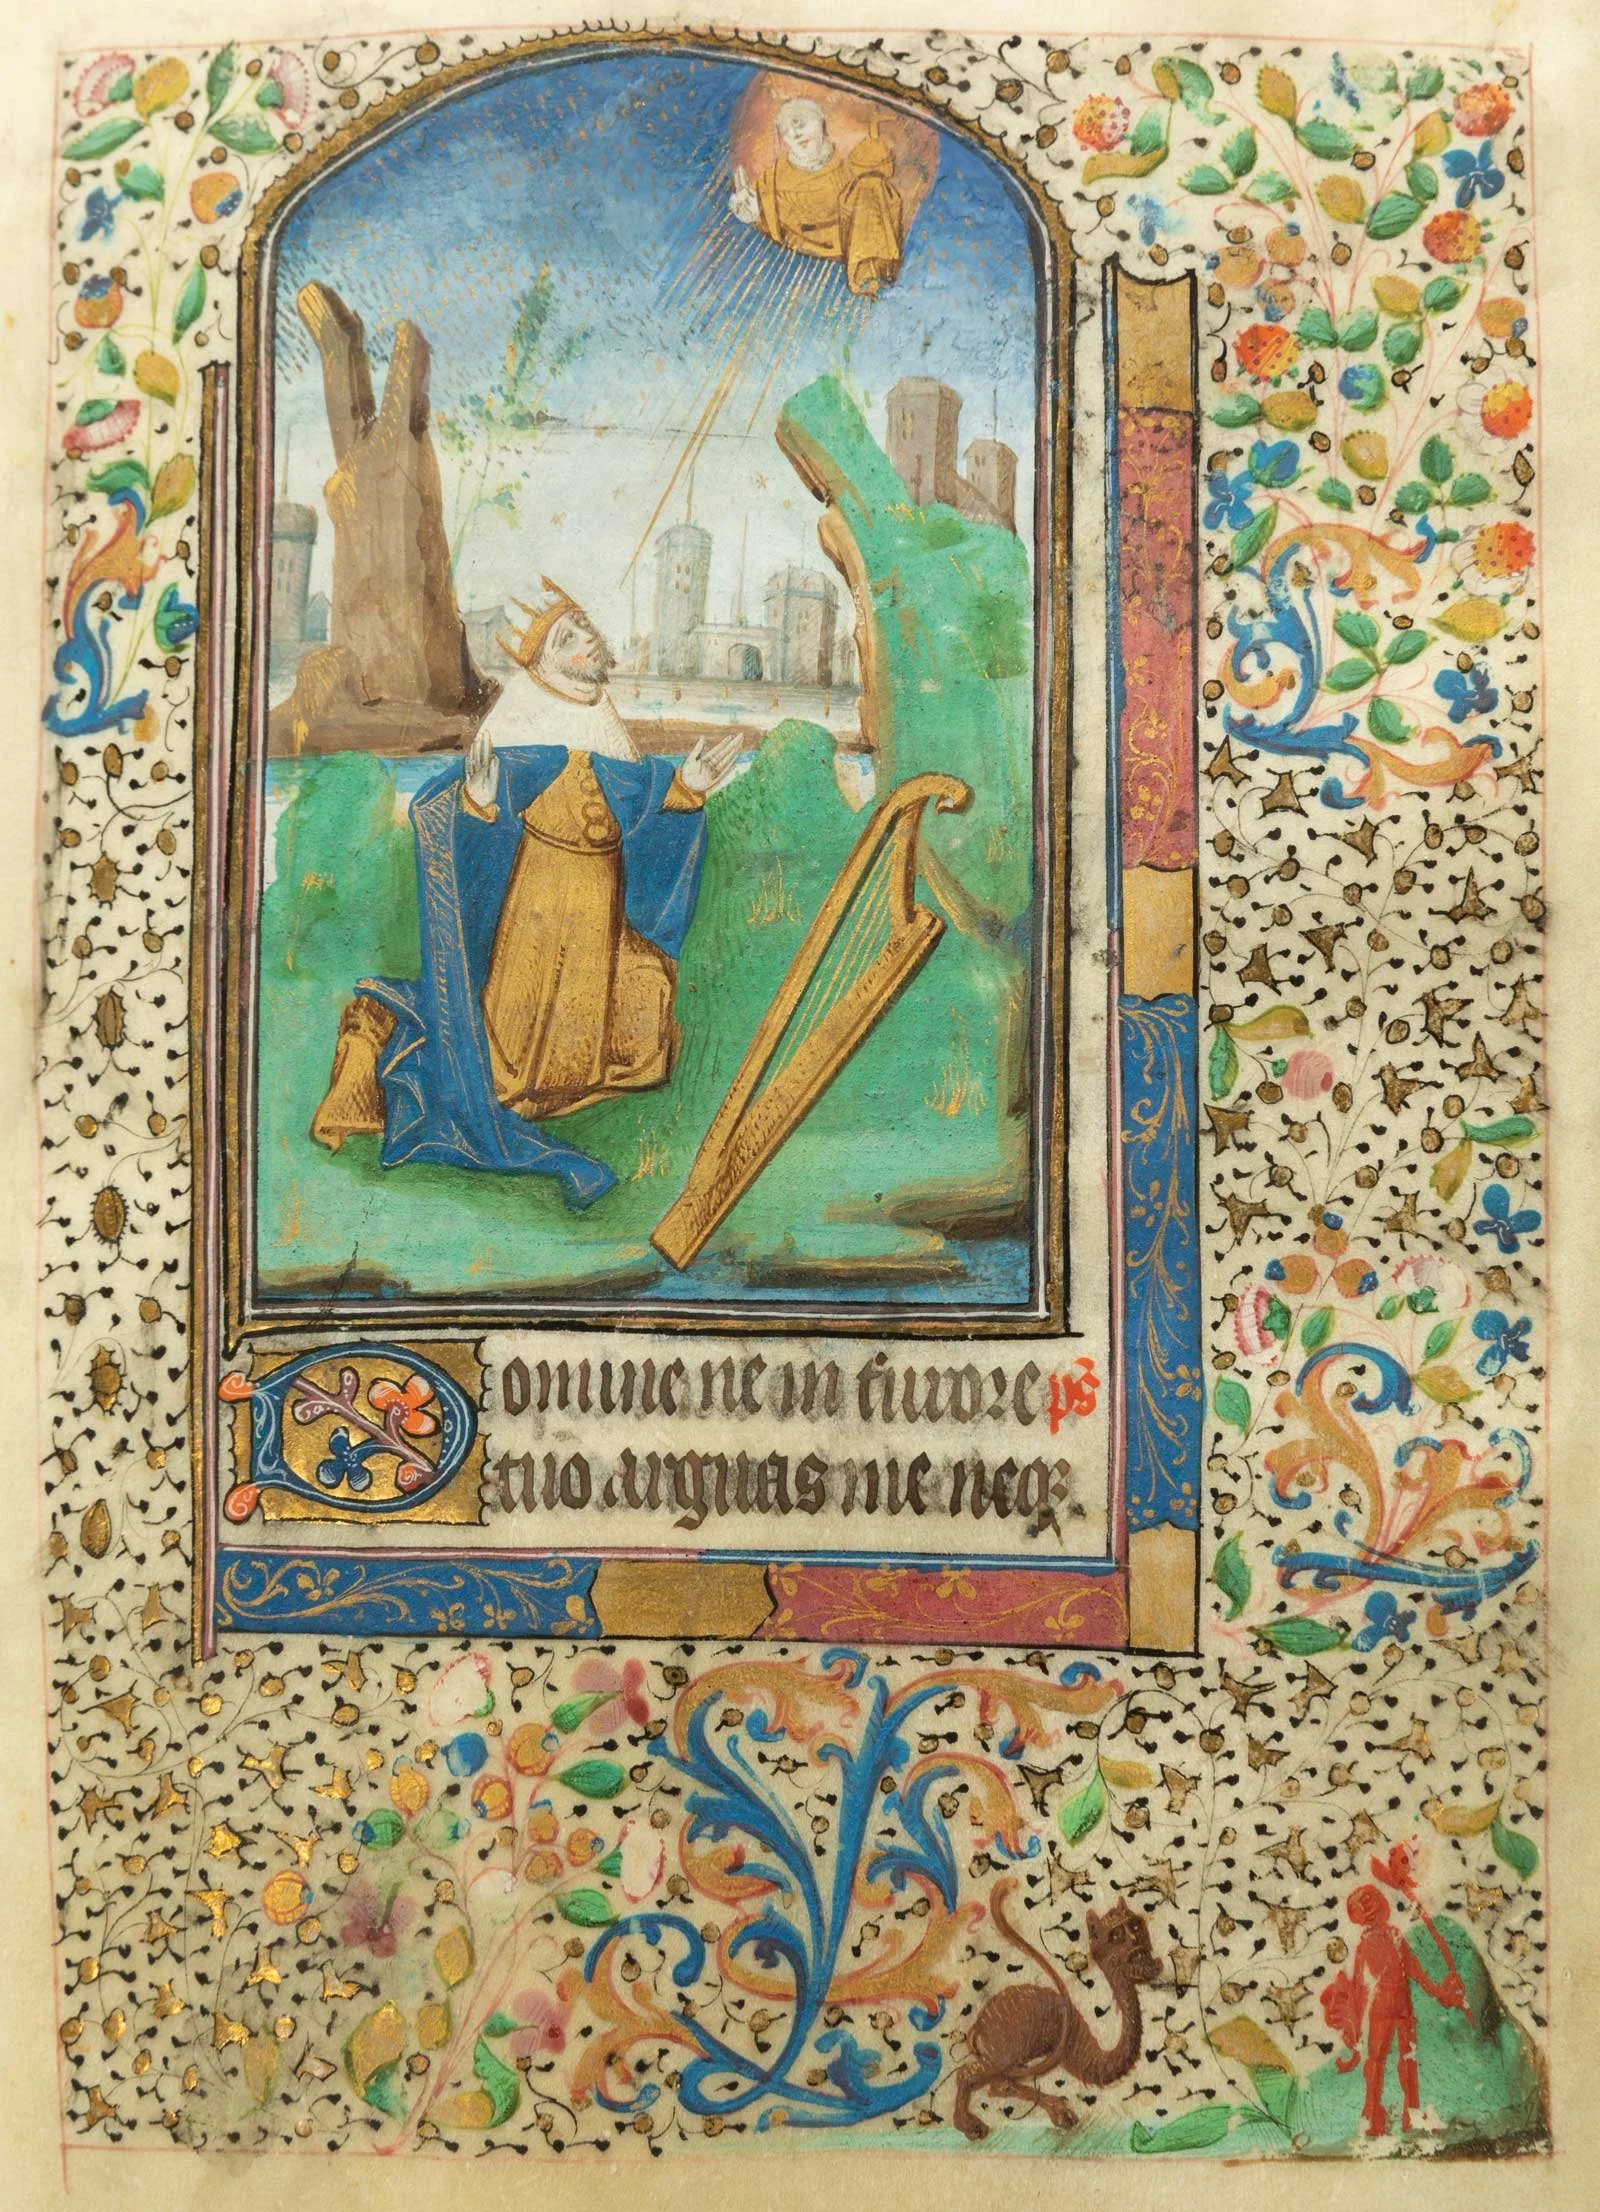 Domine ne in furore ps
tuo arguas me neq3